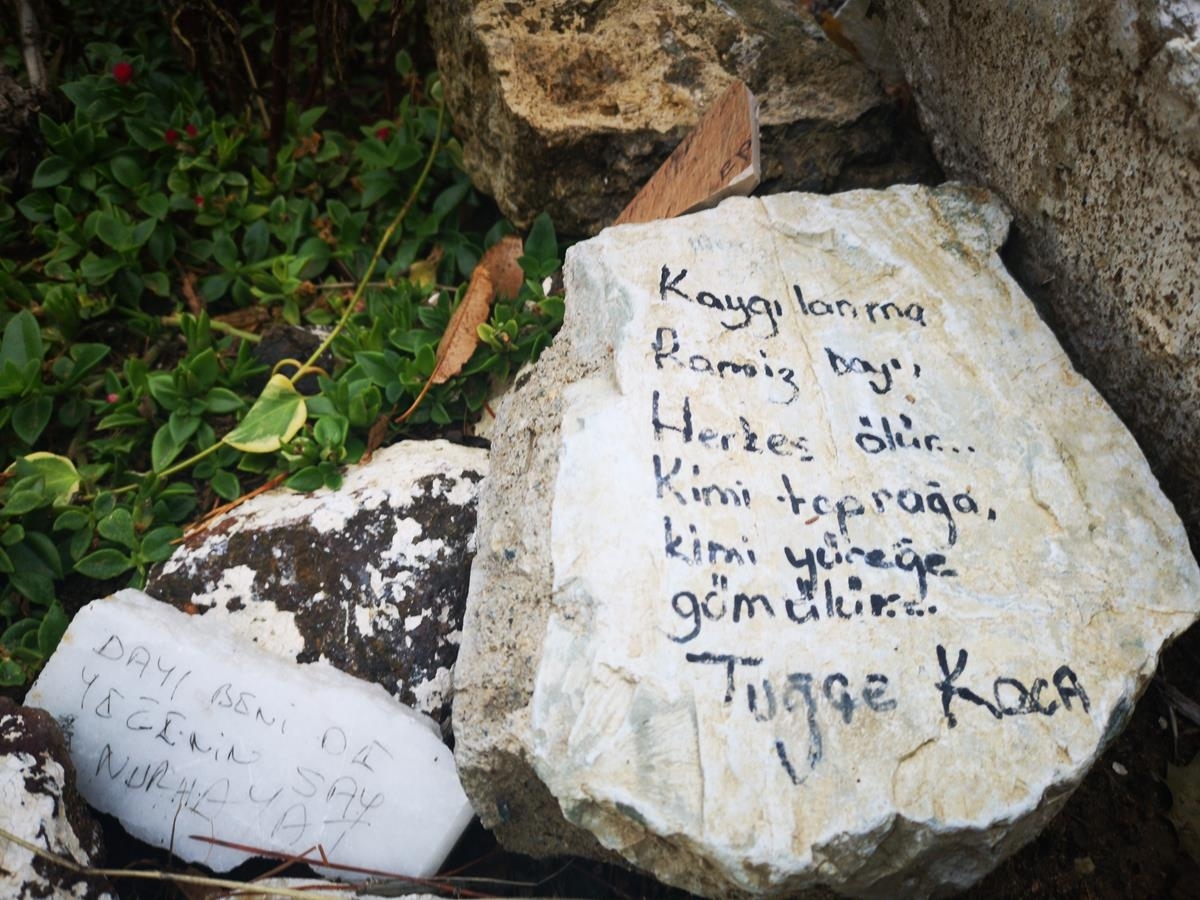 Kaygılanma
Ramiz Dayı,
Herkes ölür...
Kimi toprağa,
kimi yüreğe
gömülür...
Tuğçe KOCA
DAYI BENİ DE
YEĞENİN SAY
NURHAYAT